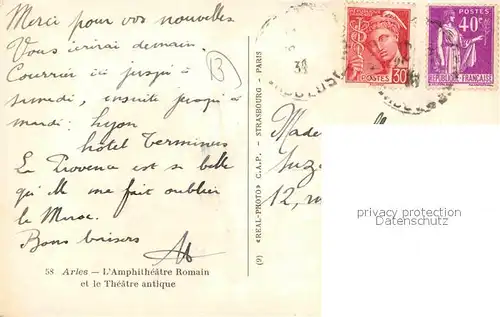 Merci pour vos nouvelles
Vous écrirai demain.
Courrier ici jusqu'à
samedi, ensuite jusqu'à
mardi: Lyon
hôtel Terminus
La Provence est si belle
qu'elle me fait oublier
le Maroc.
Bons baisers
B
58 Arles — L'Amphithéâtre Romain
et le Théâtre antique
(9) «REAL-PHOTO» C.A.P. - STRASBOURG - PARIS
38
POSTES 30
POSTES
40c
RÉPUBLIQUE FRANÇAISE
Made
Suz
12, r
privacy protection
Datenschutz